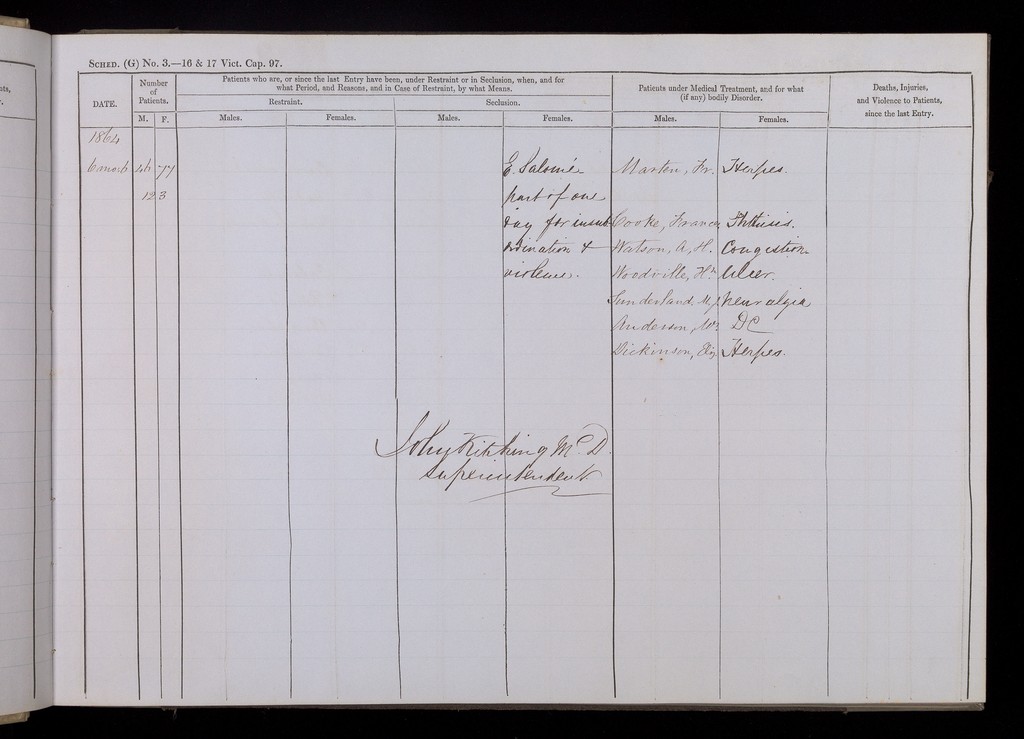 SCHED. (G) No. 3.—16 & 17 Vict. Cap. 97.
DATE.
Number of Patients.
M. F.
Patients who are, or since the last Entry have been, under Restraint or in Seclusion, when, and for
what Period, and Reasons, and in Case of Restraint, by what Means.
Restraint. Seclusion.
Males. Females. Males. Females.
Patients under Medical Treatment, and for what
(if any) bodily Disorder.
Males. Females.
Deaths, Injuries,
and Violence to Patients,
since the last Entry.
1864
6 March 46 77 E. Salomé Marton, Fr. Herpes.
123 part of one
day for insub- Cooke, Frances Phthisis.
ordination & Watson, A, H. Congestion
violence. Woodville, Hh Ulcer.
Sunderland, My neuralgia
Anderson, Do
Dickinson, Eliz. Herpes.
John Kitching M.D.
Superintendent